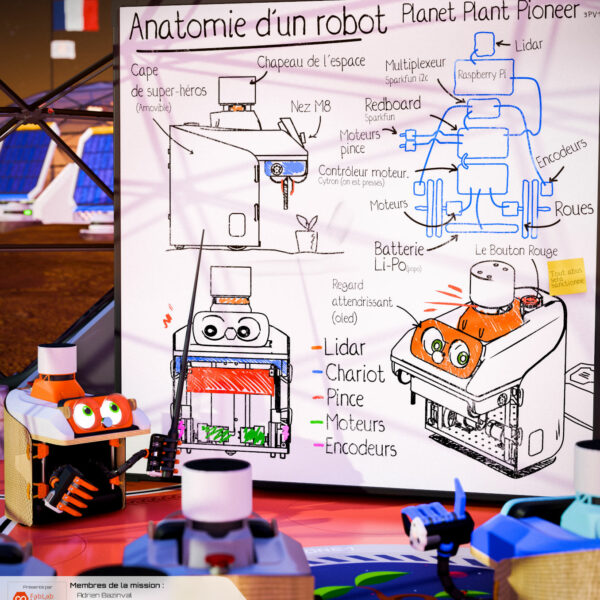 Anatomie d'un robot
Planet Plant Pioneer
3PV
Cape
de super-héros
(Amovible)
Chapeau de l'espace
Nez M8
Lidar
Multiplexeur
Sparkfun i2c
Raspberry Pi
Redboard
Sparkfun
Moteurs
pince
Encodeurs
Contrôleur moteur.
Cytron (on est pressés)
Moteurs
Roues
Batterie
Li-Po(popo)
Le Bouton Rouge
Tout abus
sera
sanctionné
Regard
attendrissant
(oled)
Lidar
Chariot
Pince
Moteurs
Encodeurs
Présenté par
fablab
Membres de la mission :
Adrien Bazinval